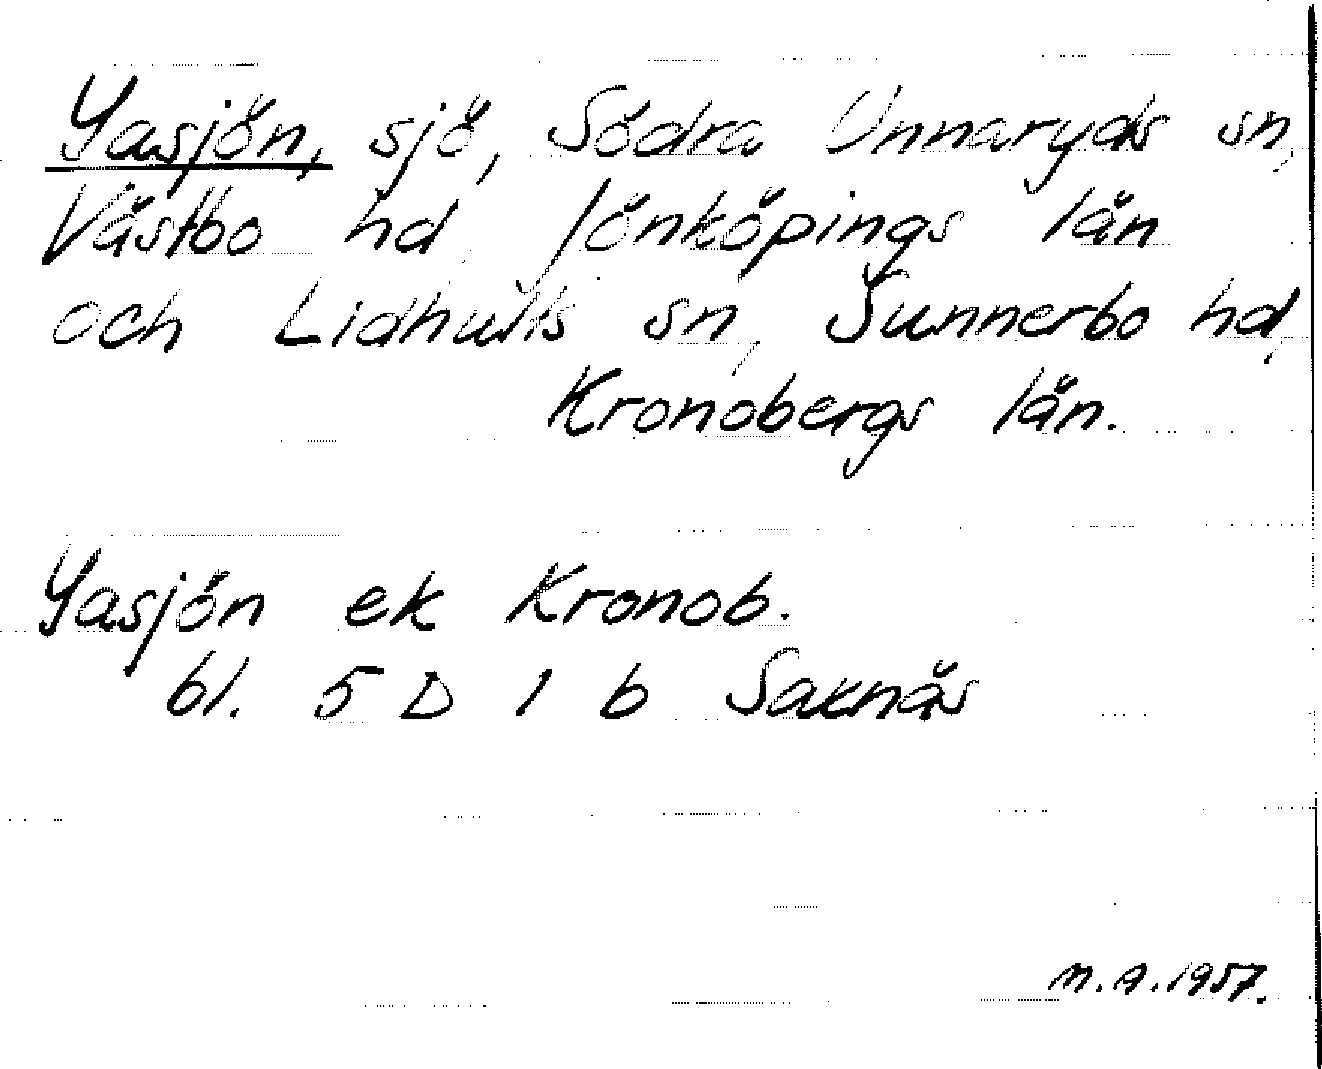 Yasjön, sjö, Södra Unnaryds sn,
Västbo hd Jönköpings län
och Lidhults sn, Sunnerbo hd,
Kronobergs län.
Yasjön ek Kronob.
bl. 5 D 1 b Saxnäs
M.A.1957.